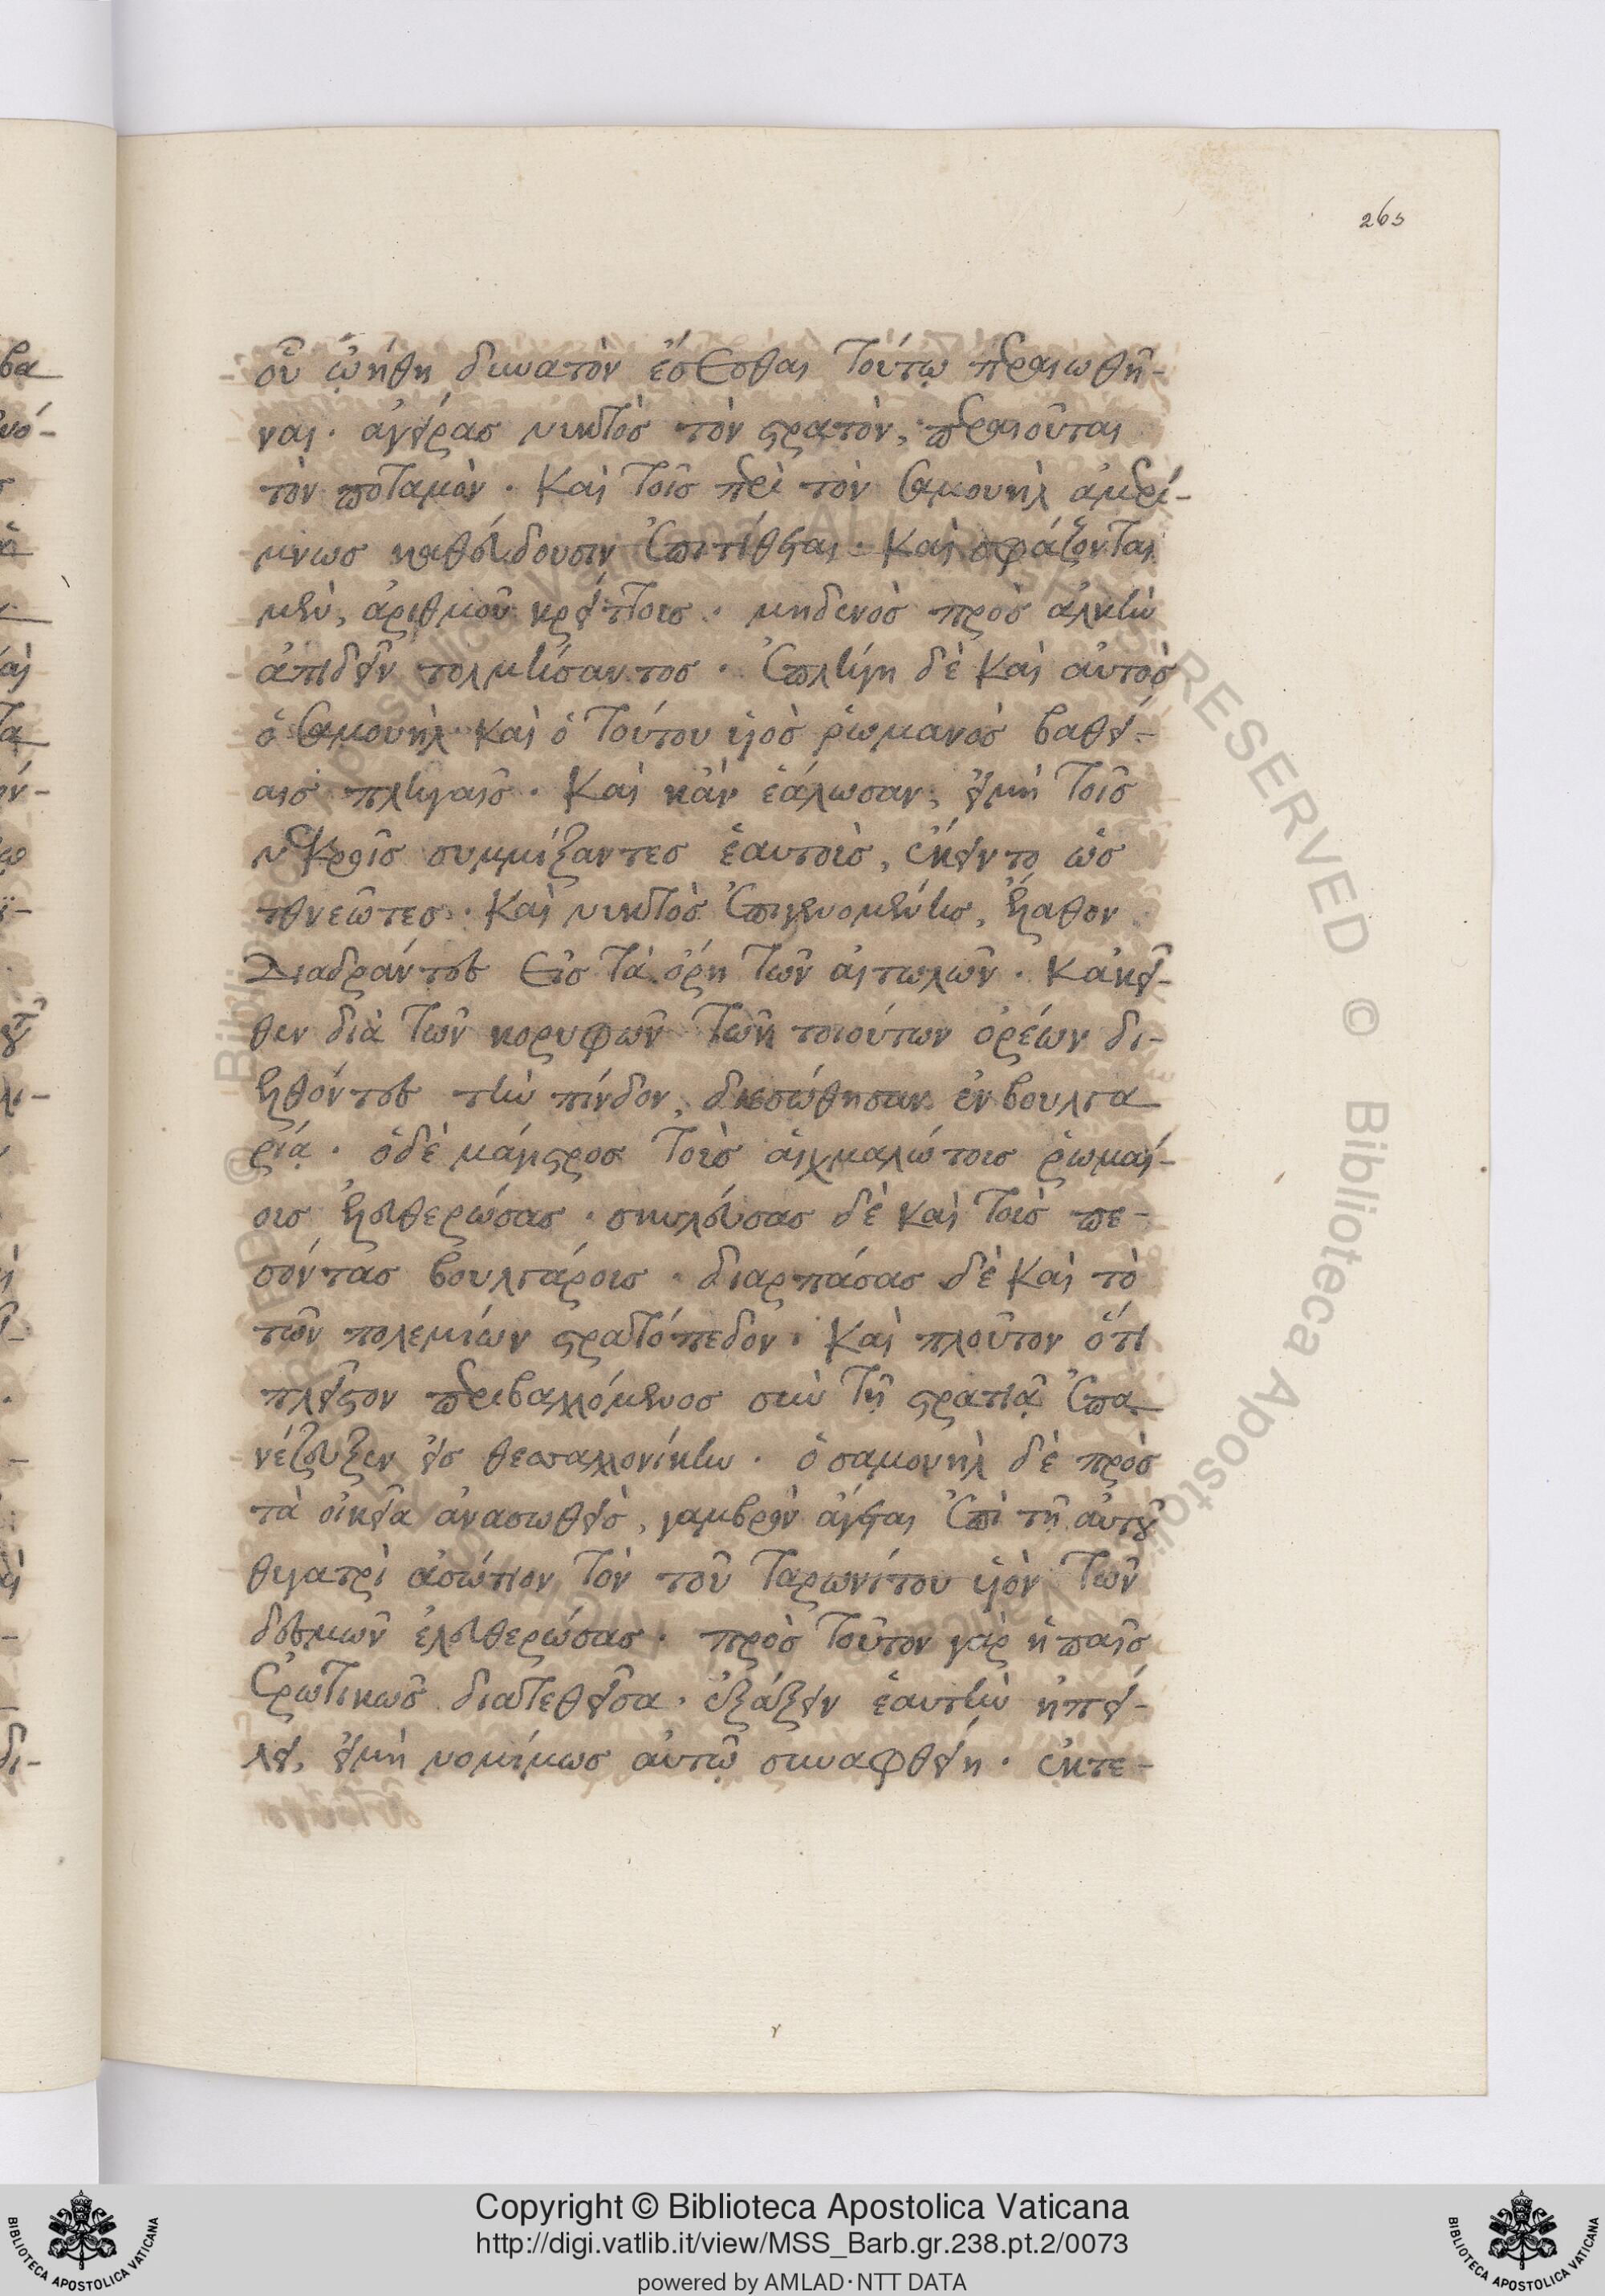 263
οὗ ᾠήθη δυνατὸν ἔσεσθαι τούτῳ περαιωθῆ-
ναι. ἀγείρας νυκτὸς τὸν στρατὸν, περαιοῦται
τὸν ποταμόν. καὶ τοῖς περὶ τὸν σαμουὴλ ἀμερί-
μνως καθεύδουσιν ἐπιτίθεται. καὶ σφάζονται
μὲν, ἀριθμοῦ κρείττους. μηδενὸς πρὸς ἀλκὴν
ἀπιδεῖν τολμήσαντος. ἐπλήγη δὲ καὶ αὐτὸς
ὁ σαμουὴλ καὶ ὁ τούτου υἱὸς ῥωμανὸς βαθεί-
αις πληγαῖς. καὶ κἂν ἑάλωσαν, εἰμὴ τοῖς
νεκροῖς συμμίξαντες ἑαυτοὺς, ἔκειντο ὡς
τθνεῶτες. καὶ νυκτὸς ἐπιγενομένης, ἔλαθον
διαδράντες εἰς τὰ ὄρη τῶν αἰτωλῶν. κἀκεῖ-
θεν διὰ τῶν κορυφῶν τῶν τοιούτων ὀρέων δι-
ελθόντες τὴν πίνδον, διεσώθησαν ἐν βουλγα
ρίᾳ. ὁδὲ μάγιστρος τοὺς αἰχμαλώτους ῥωμαί-
ους ἐλευθερώσας. σκυλεύσας δὲ καὶ τοὺς πε-
σόντας βουλγάρους. διαρπάσας δὲ καὶ τὸ
τῶν πολεμίων στρατόπεδον. καὶ πλοῦτον ὅτι
πλεῖστον περιβαλλόμενος σὺν τῇ στρατιᾷ ἐπα
νέζευξεν εἰς θεσσαλλονίκην. ὁ σαμουὴλ δὲ πρὸς
τὰ οἰκεῖα ἀνασωθεὶς, γαμβρὸν ἄγεται ἐπὶ τῇ αὐτοῦ
θυγατρὶ ἀσώτιον τὸν τοῦ ταρωνίτου υἱὸν τῶν
δεσμῶν ἐλευθερώσας. πρὸς τοῦτον γὰρ ἡ παῖς
ἐρωτικῶς διατεθεῖσα. ἐξάξειν ἑαυτὴν ἠπεί-
λει, εἰμὴ νομίμως αὐτῷ συναφθείη. ἐκτε-
Copyright © Biblioteca Apostolica Vaticana
http://digi.vatlib.it/view/MSS_Barb.gr.238.pt.2/0073
powered by AMLAD·NTT DATA
BIBLIOTECA APOSTOLICA VATICANA
BIBLIOTECA APOSTOLICA VATICANA